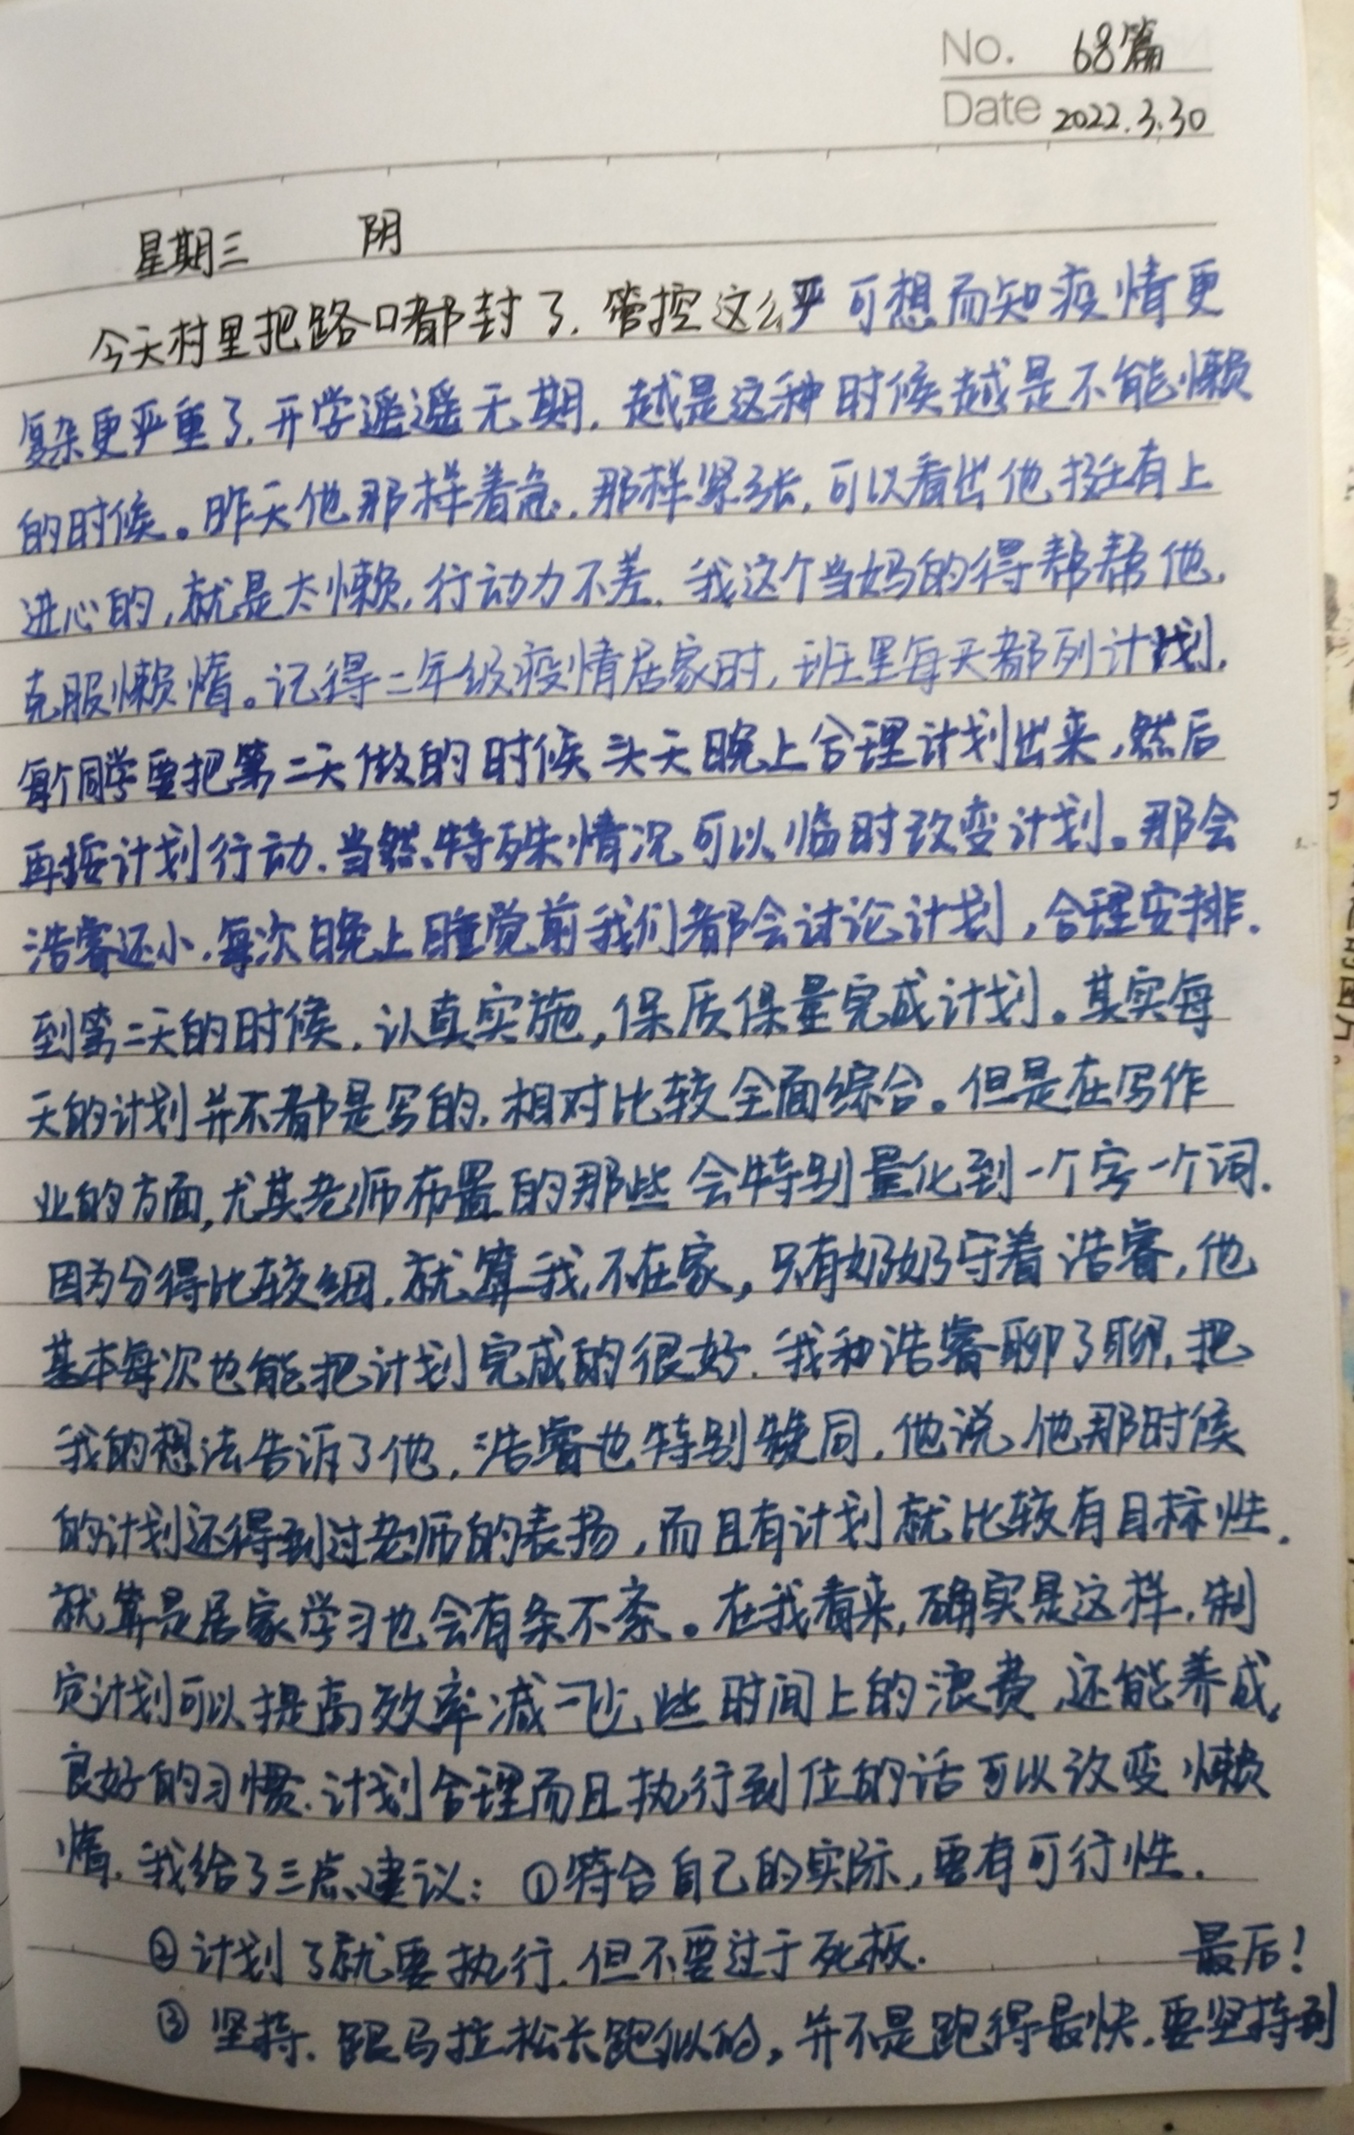 No. 68篇
Date 2022.3.30
星期三 阴
今天村里把路口都封了.管控这么严可想而知疫情更
复杂更严重了.开学遥遥无期.越是这种时候越是不能懒
的时候。昨天他那样着急.那样紧张,可以看出他挺有上
进心的,就是太懒,行动力不差.我这个当妈的得帮帮他.
克服懒惰。记得二年级疫情居家时,班里每天都列计划.
每个同学要把第二天做的时候头天晚上合理计划出来,然后
再按计划行动.当然特殊情况可以临时改变计划。那会
浩睿还小.每次晚上睡觉前我们都会讨论计划,合理安排.
到第二天的时候.认真实施,保质保量完成计划。其实每
天的计划并不都是写的.相对比较全面综合。但是在写作
业的方面,尤其老师布置的那些会特别量化到一个字一个词.
因为分得比较细.就算我不在家,只有奶奶守着浩睿,他
基本每次也能把计划完成的很好.我和浩睿聊了聊,把
我的想法告诉了他,浩睿也特别赞同.他说他那时候
的计划还得到过老师的表扬,而且有计划就比较有目标性.
就算是居家学习也会有条不紊。在我看来,确实是这样,制
定计划可以提高效率减少一些时间上的浪费.还能养成
良好的习惯.计划合理而且执行到位的话可以改变懒
惰.我给了三点建议:①符合自己的实际,要有可行性.
②计划了就要执行.但不要过于死板. 最后!
③坚持.跟马拉松长跑似的,并不是跑得最快.要坚持到